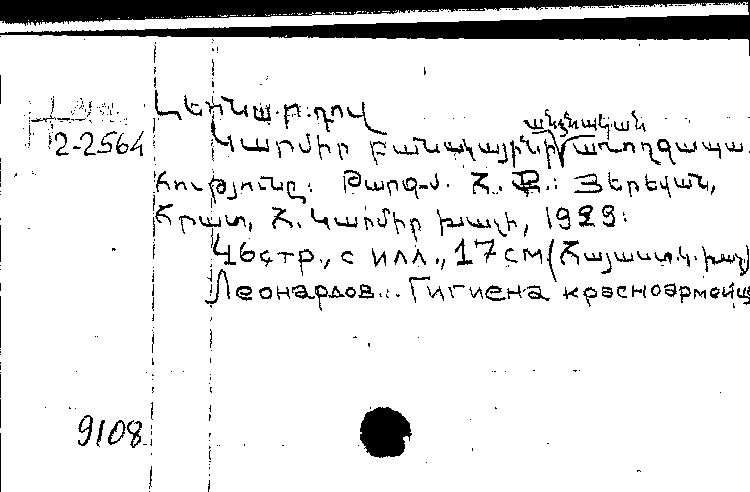 2-2564
Կարմիր բանակայինի անձնական առողջապա-
հությունը: Թարգմ. Հ. Զ.: Յերեվան,
Հրատ. Հ. Կարմիր խաչի, 1929:
46 стр., с илл., 17 см (Հայաստ. կ. խաչ)
Леонардов... Гигиена красноармейц
9108